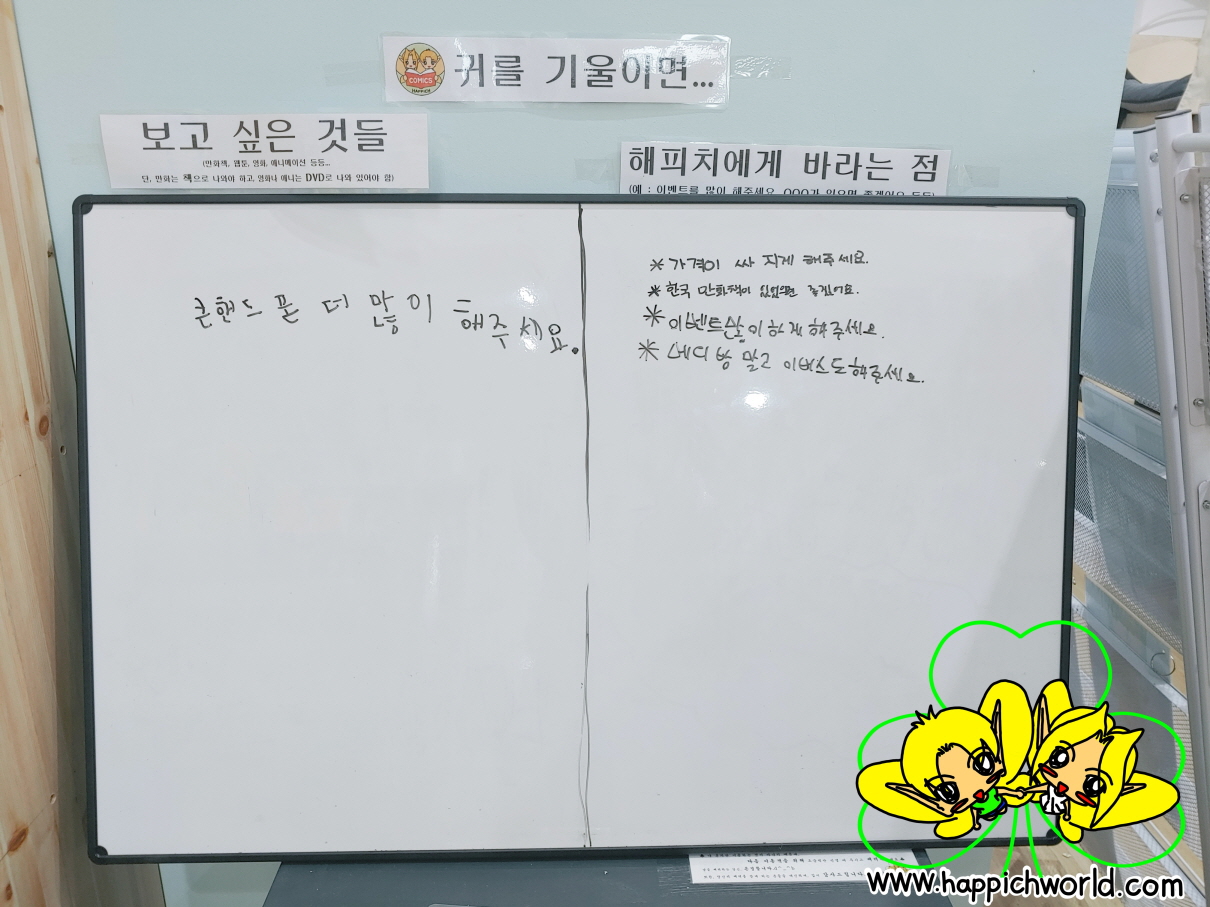 귀를 기울이면...
COMICS
HAPPICH
보고 싶은 것들
(만화책, 웹툰, 영화, 애니메이션 등등...
단, 만화는 책으로 나와야 하고, 영화나 애니는 DVD로 나와 있어야 함)
해피치에게 바라는 점
(예 : 이벤트를 많이 해주세요, OOO가 있으면 좋겠어요 등등)
콘핸드폰 더 많이 해주세요.
*가격이 싸지게 해주세요.
*한국 만화책이 있었으면 좋겠어요.
*이벤트많이하게해주세요.
*말고 해주세요.
www.happichworld.com